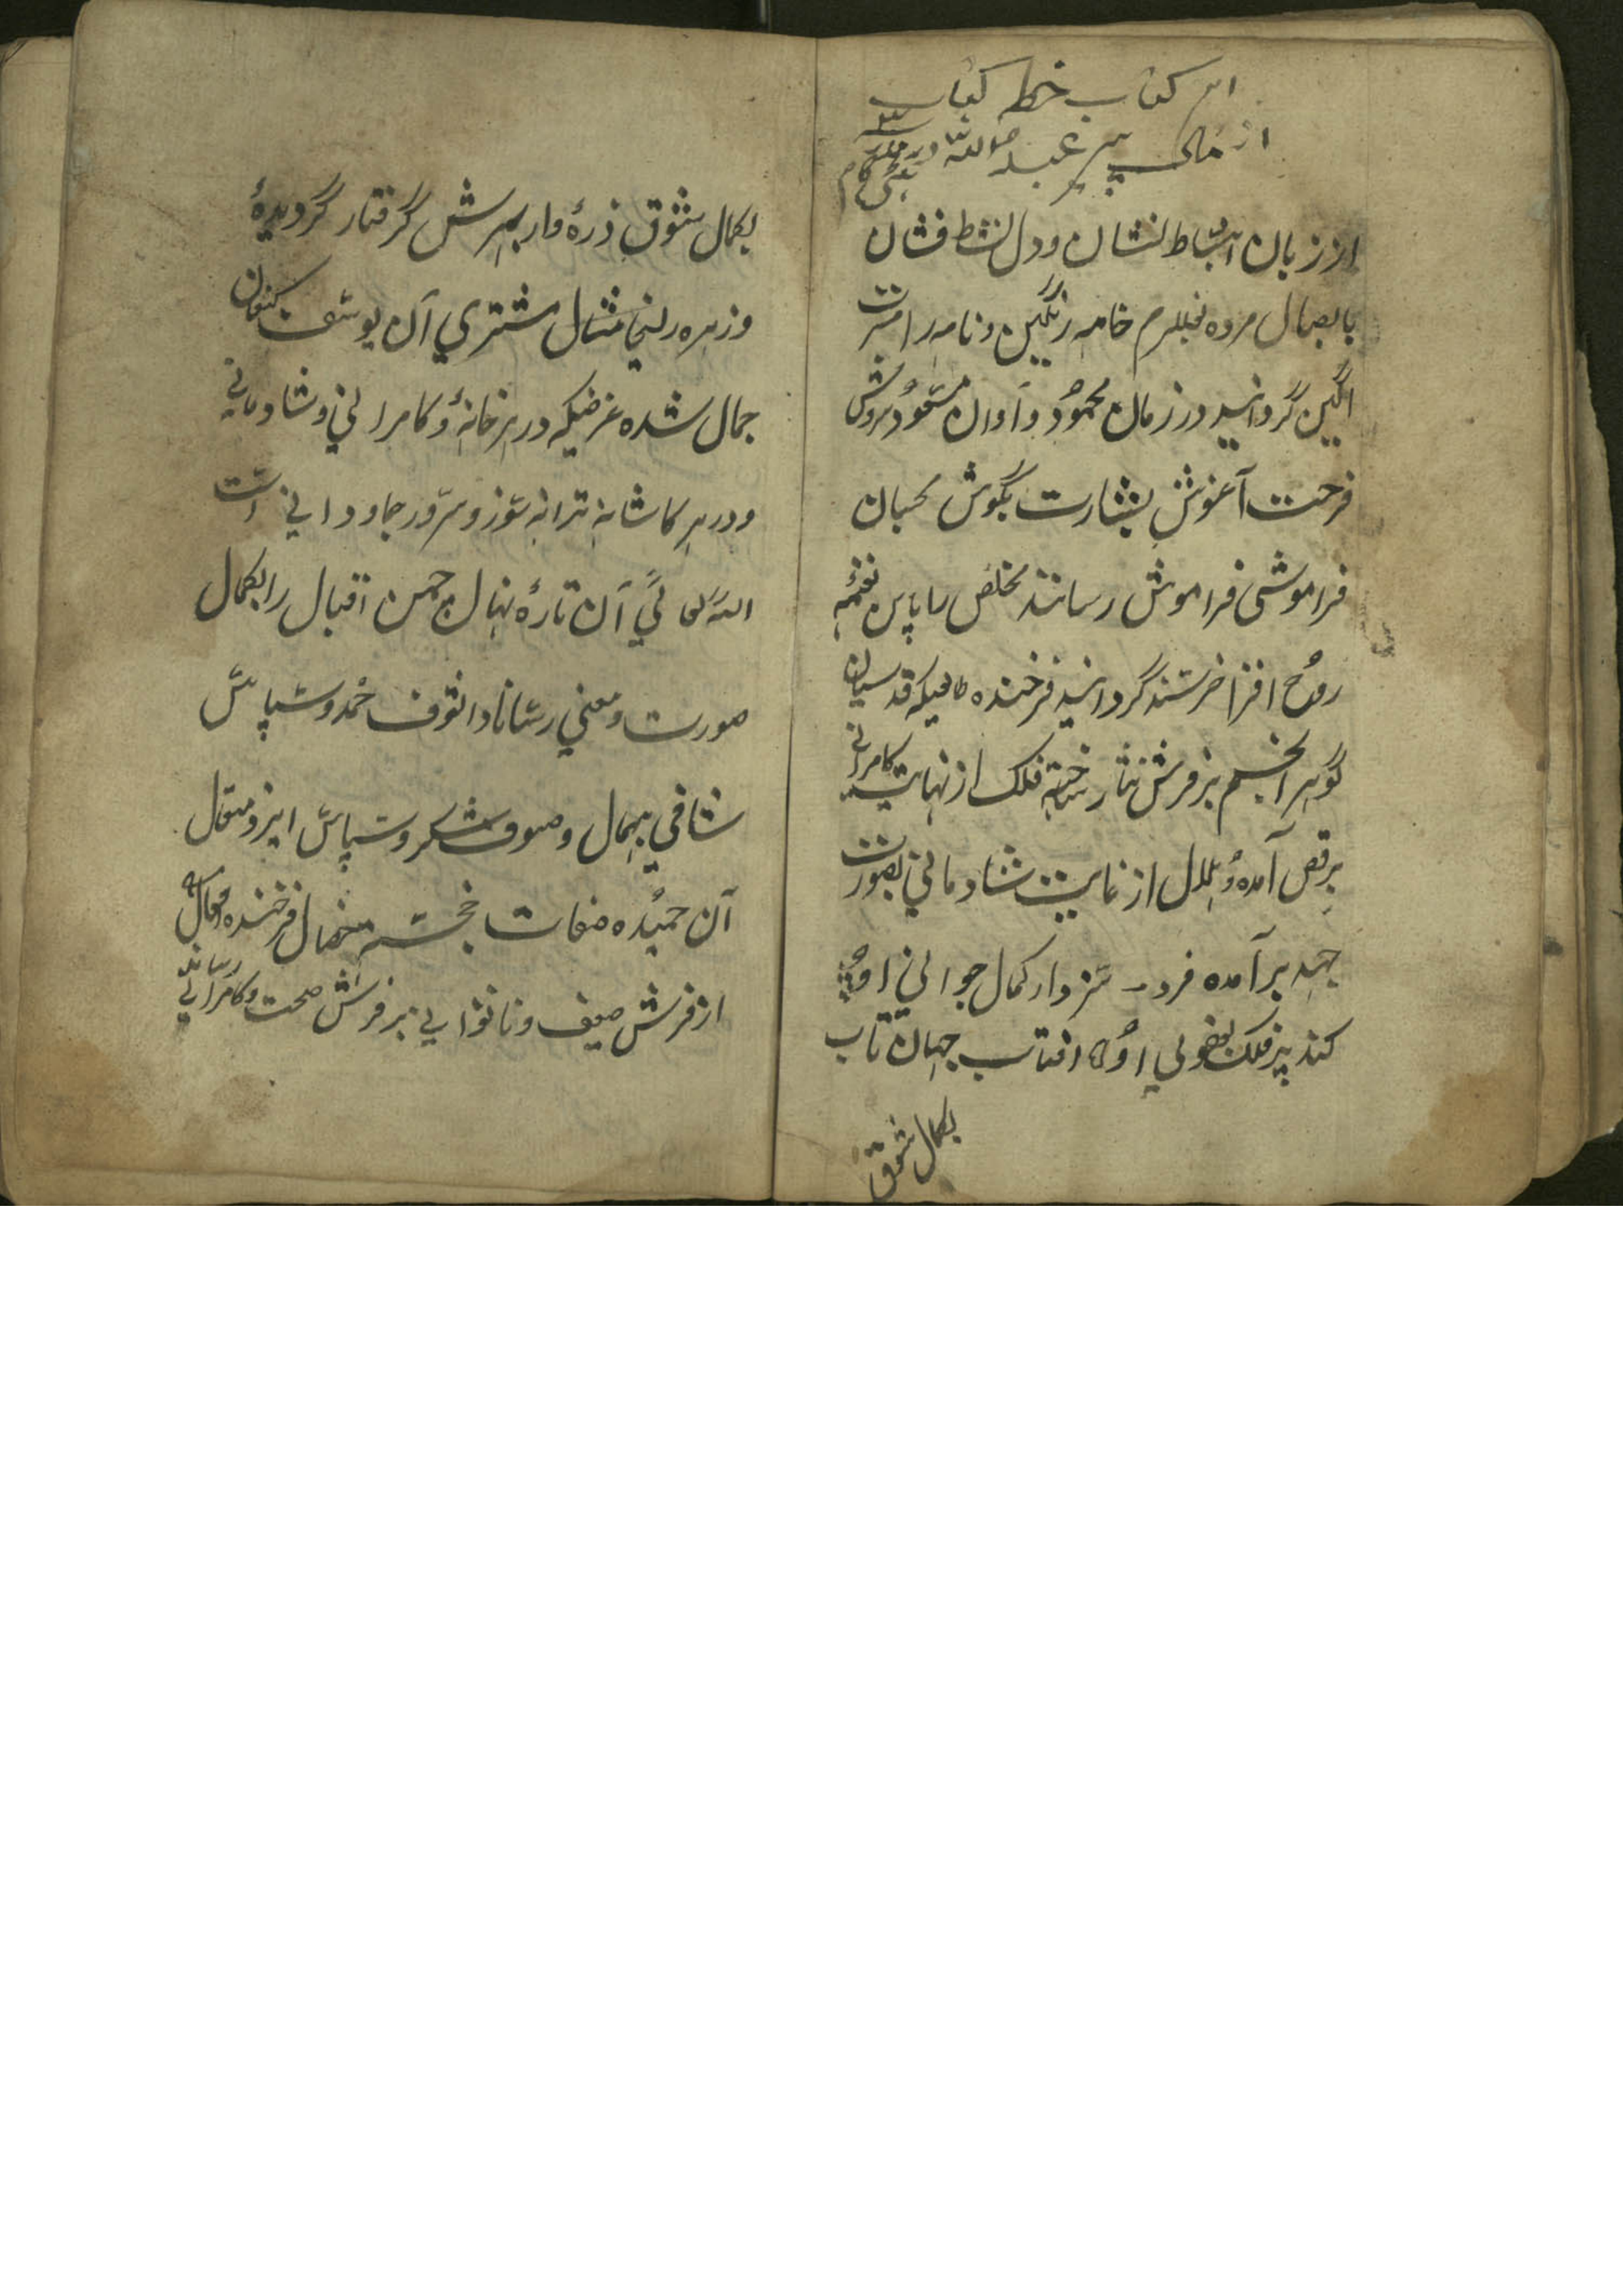 این کتاب خط کتاب
از مال پیر عبد اللہ در ملک
از زبان انبساط لنشان و دل نشط فشان
بایصال مژده خامه رنگین و نامه را مسرت
اگین گردانید در زمان محمود و آوان مسعود سروش
فرحت آغوش بشارت بگوش
فراموشی فراموش رسانند مخلص نغمہٴ
روح افزا خرسند گردانید فرخنده طالعیکه قدسیان
گوهر انجم بر فرش نثار ساخته فلک از نهایت کامرانی
برقص آمده و هلال از غایت شادمانی بصورت
جبهه بر آمده فرد سزوار کمال جوانی او
کند پیر فلک او افتاب جهان تاب
بکمال شوق
بکمال شوق ذرهٔ وار بمهرش گرفتار گردیدهٔ
و زهره زلیخا مثال مشتری آن یوسف کنعان
جمال شده غرضیکه در هر خانهٔ و کامرانی و شادمانی
و در هر کاشانه ترانه سوز و سرور جاودانی است
الله تعالی آن تازهٔ نهال چمن اقبال را بکمال
صورت و معنی رساناد انوف حمد و سپاس
شافی بیهمال و صوف شکر و سپاس ایزد متعال
آن حمیده صفات خجسته خصال فرخنده فعال که
از فرش ضعف و ناتوانی بر فرش صحت و کامرانی رساند